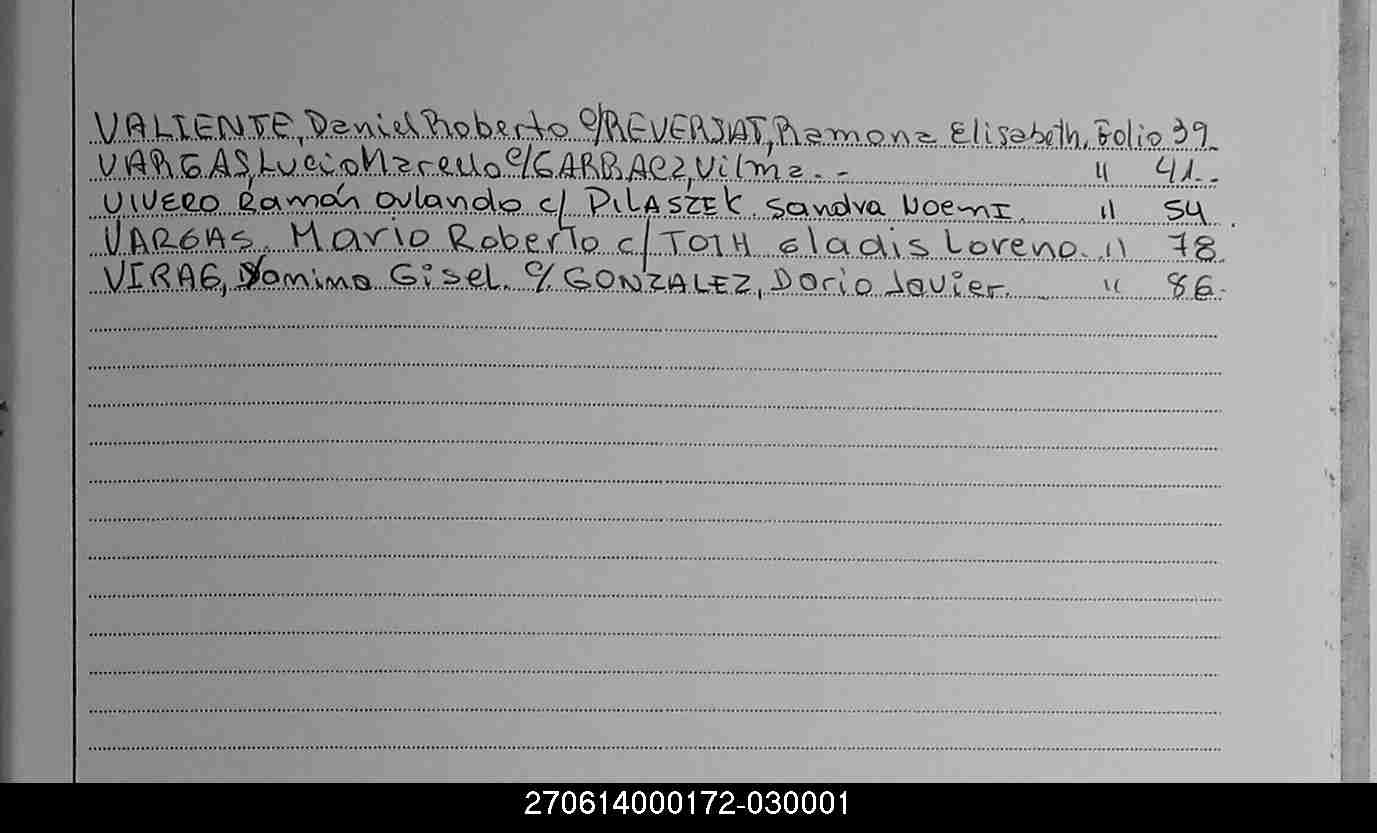 VALIENTE, Daniel Roberto c/REVERSAT, Ramona Elisabeth. Folio 39.
VARGAS, Lucio Marcelo c/GARBACZ, Vilma. - " 41.-
VIVERO Ramón Orlando c/ PILASZEK. Sandra Noemi. " 54.
VARGAS. Mario Roberto c/ TOTH Gladis Loreno. " 78.
VIRAG, Yamina Gisel. c/ GONZALEZ, Dario Javier. " 86.
270614000172-030001